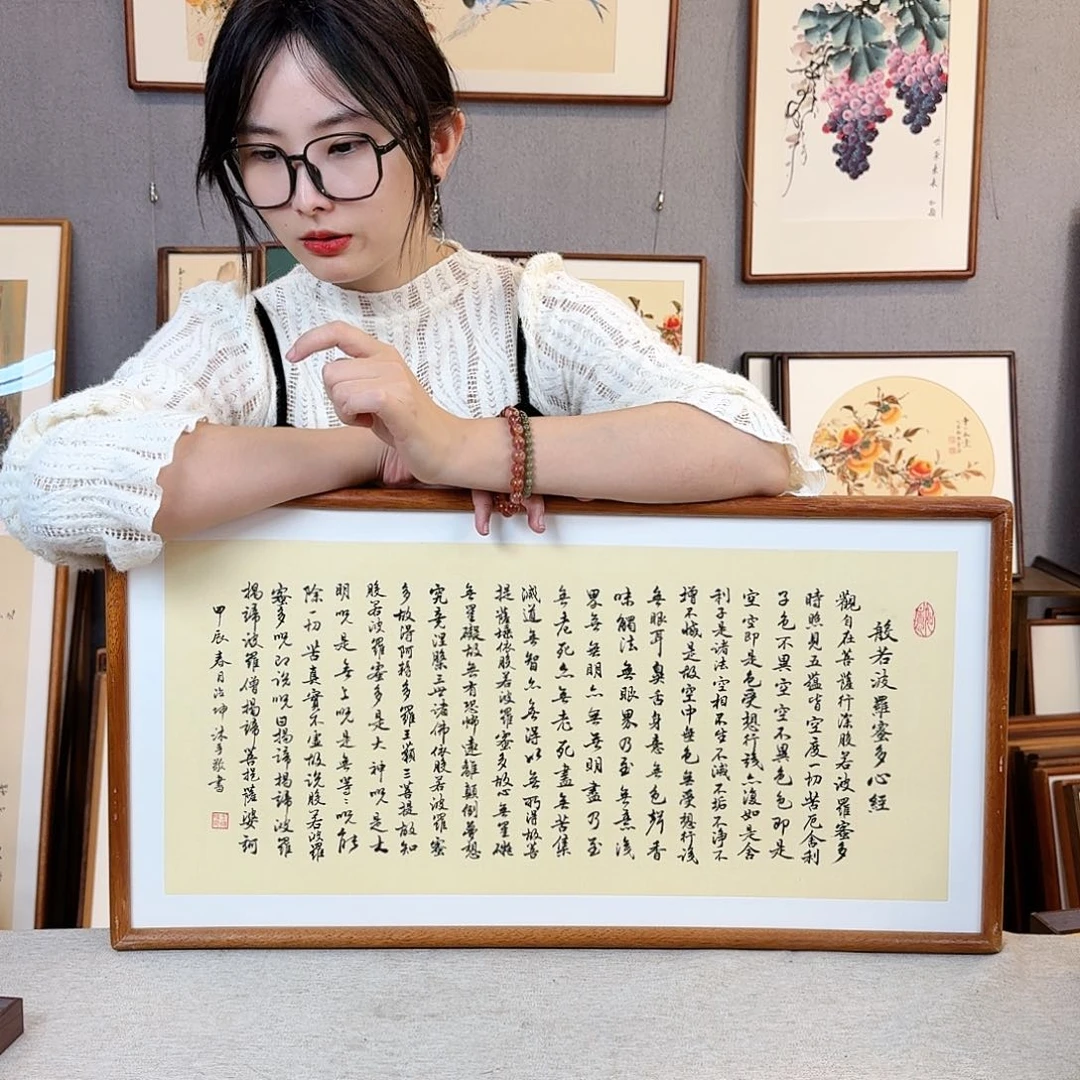 般若波羅蜜多心經
觀自在菩薩行深般若波羅蜜多
時照見五蘊皆空度一切苦厄舍利
子色不異空空不異色色即是
空空即是色受想行識亦復如是舍
利子是諸法空相不生不滅不垢不淨不
增不減是故空中無色無受想行識
無眼耳鼻舌身意無色聲香
味觸法無眼界乃至無意識
界無無明亦無無明盡乃至
無老死亦無老死盡無苦集
滅道無智亦無得以無所得故菩
提薩埵依般若波羅蜜多故心無罣礙
無罣礙故無有恐怖遠離顛倒夢想
究竟涅槃三世諸佛依般若波羅蜜
多故得阿耨多羅三藐三菩提故知
般若波羅蜜多是大神呪是大
明呪是無上呪是無等〻呪能
除一切苦真實不虛故說般若波羅
蜜多呪即說呪曰揭諦揭諦波羅
揭諦波羅僧揭諦菩提薩婆訶
甲辰春月治坤沐手敬書